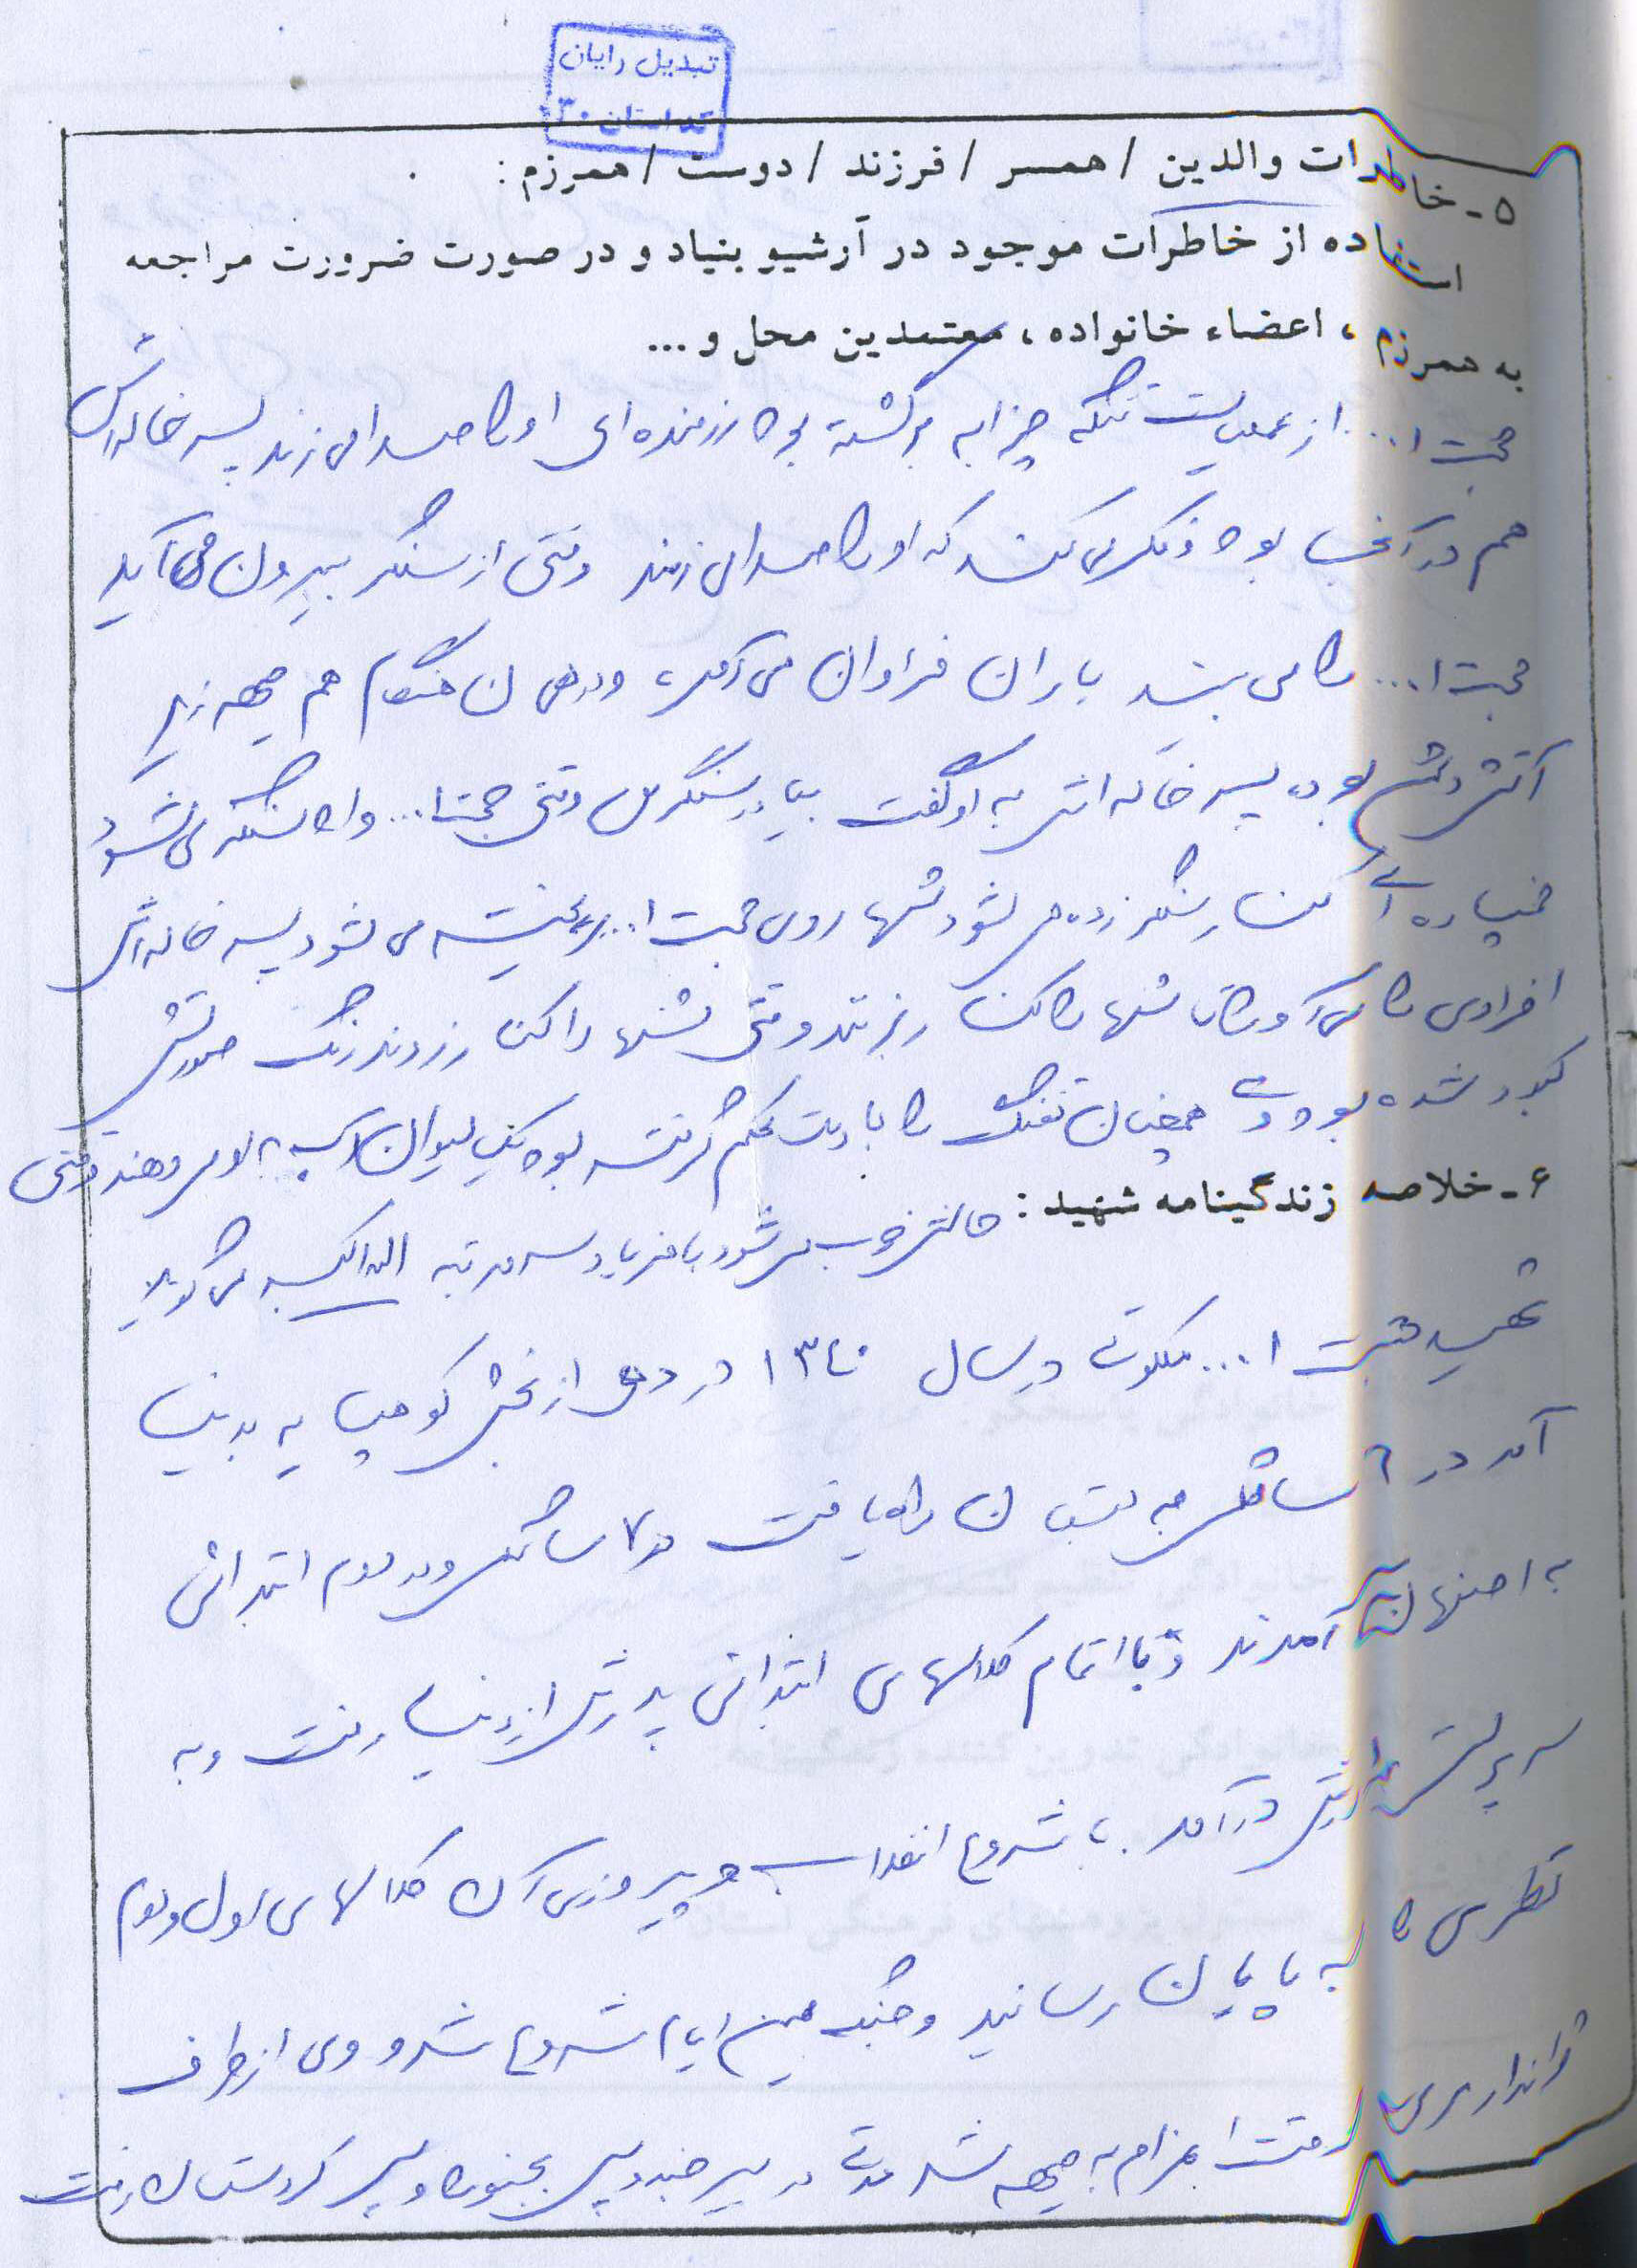 تبدیل رایان
کد استان ۳۰
۵- خاطرات والدین / همسر / فرزند / دوست / همرزم :
استفاده از خاطرات موجود در آرشیو بنیاد و در صورت ضرورت مراجعه
به همرزم ، اعضاء خانواده ، معتمدین محل و ...
حجت ا... از عملیات تنگه چزابه برگشته بود رزمنده ای او را صدا می زند پسر خاله اش
هم در آنجا بود و فکر می کند که او را صدا می زنند وقتی از سنگر بیرون می آید
حجت ا... را می بیند باران فراوان می آمد و در همان هنگام هم جبهه زیر
آتش دشمن بود پسر خاله اش به او گفت بیا در سنگر من وقتی حجت ا... وارد سنگر می شود
خمپاره ای کنار سنگر زده می شود شنها روی حجت ا... ریخته می شود پسر خاله اش
افرادی را می آورد تا شنها را کنار بزنند وقتی شنها را کنار زدند رنگ صورتش
کبود شده بود وی همچنان تفنگ را با دست محکم گرفته بود یک لیوان آب به او می دهند وقتی
۶- خلاصه زندگینامه شهید : حالش خوب می شود با فریاد سه مرتبه الله اکبر می گوید
شهید حجت ا... ملکوتی در سال ۱۳۴۰ در دهی از بخش کوهپایه به دنیا
آمد در ۶ سالگی به دبستان راه یافت در ۷ سالگی و در دوم ابتدائی
به اصفهان آمدند و با اتمام کلاسهای ابتدائی پدرش از دنیا رفت و به
سرپرستی مادرش در آمد . با شروع انقلاب و پیروزی آن کلاسهای اول و دوم
نظری را به پایان رسانید و جنگ همین ایام شروع شد و وی از طرف
ژاندارمری اعزام به جبهه شد مدتی در بیرجند و سپس بجنورد و سپس کردستان رفت